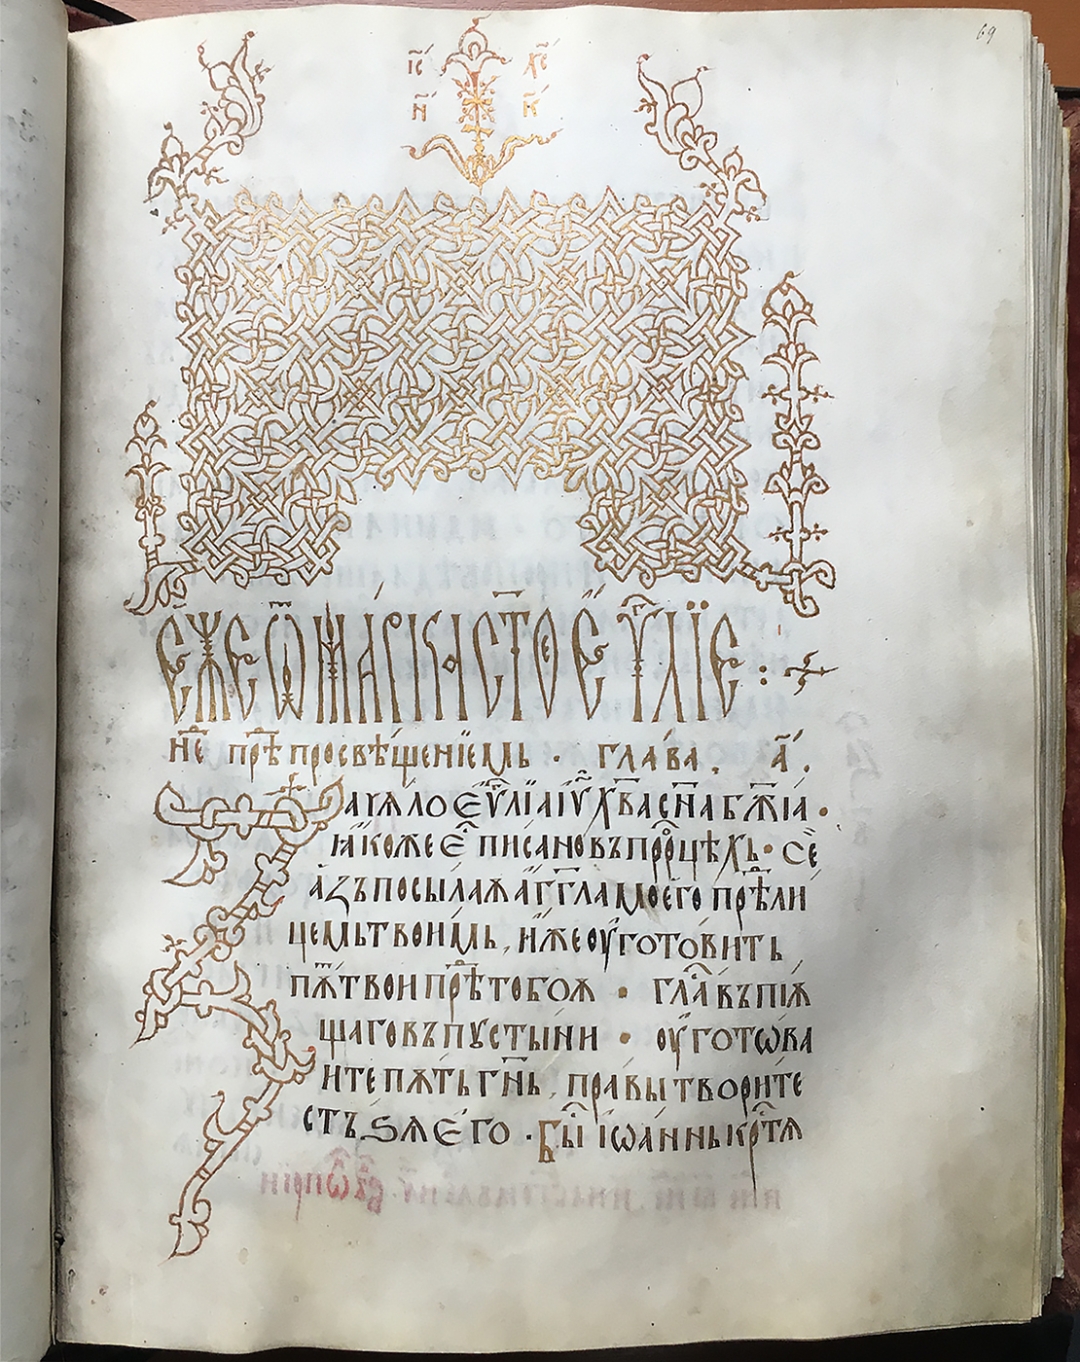 69
і҃с х҃с
н҃ к҃
є҆́же ѿ ма́рка ст҃оє є҆ѵ҃лїе :
нⷣе прⷣѣ просвѣщенїемь · глава . а҃ .
Зачѧло єѵ҃лїа іѵ҃ х҃ва сн҃а бж҃їа ·
ꙗкоже єⷭ҇ писано въ прⷪ҇рцѣхь · сѐ
а҆́зъ посылаѫ а҆́гг҃ла моего прⷣѣ ли
цемь твоимь , и҆́же ѹготовить
пѫⷮ твои прⷣѣ тобоѫ · глаⷭ҇ въпїѫ
щаго въ пѹстыни · ѹготѡва
ите пѫть гн҃ь , правы творите
стъѕѧ є҆го · Быⷭ҇ і҆ѡа́ннь крⷭ҇тѧ